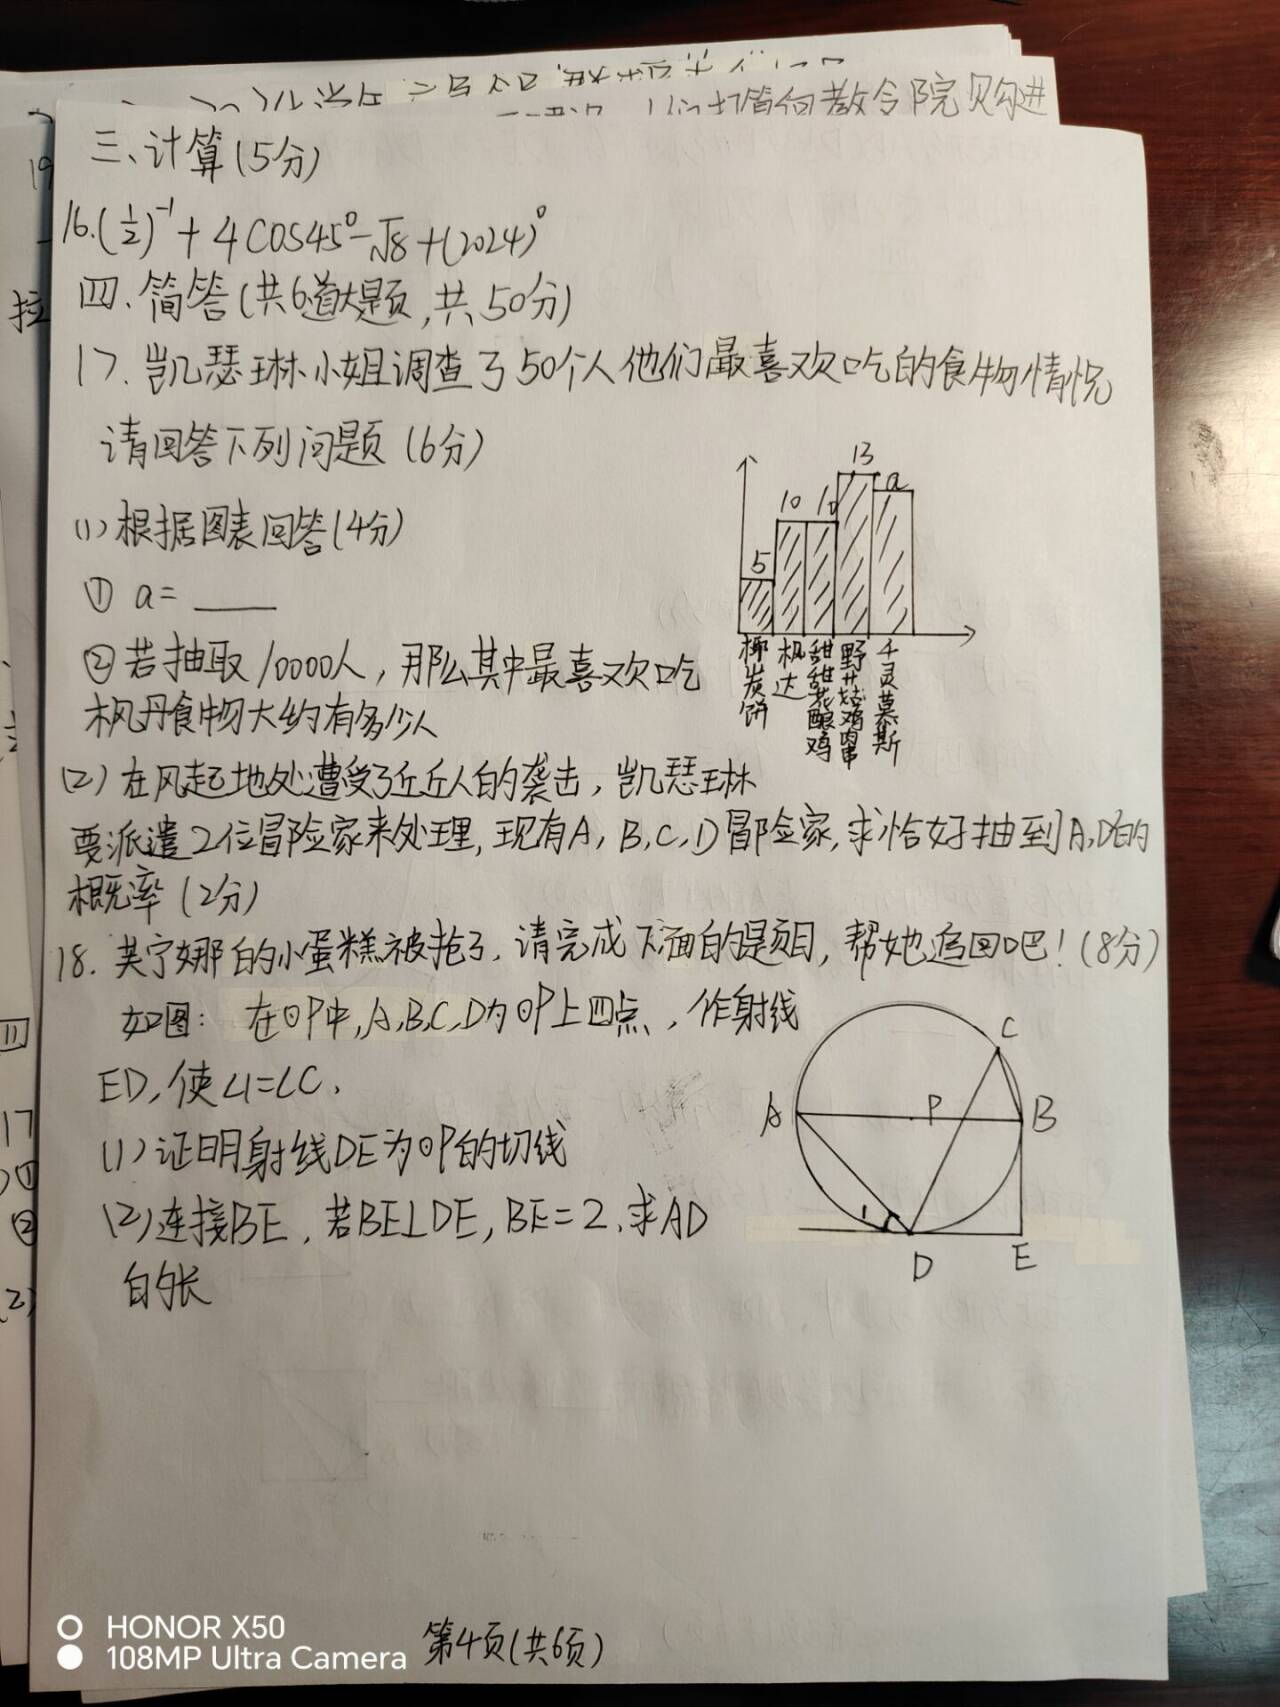 们打算向教令院购进
三、计算(5分)
16.(1/2)⁻¹+4COS45°-√8+(2024)⁰
四、简答(共6道大题,共50分)
17.凯瑟琳小姐调查了50个人他们最喜欢吃的食物情况
请回答下列问题(6分)
(1)根据图表回答(4分)
① a=____
②若抽取10000人,那么其中最喜欢吃
枫丹食物大约有多少人
5
10
10
13
a
椰炭饼
枫达
甜甜花酿鸡
野菇鸡肉串
千灵慕斯
(2)在风起地处遭受了丘丘人的袭击,凯瑟琳
要派遣2位冒险家来处理,现有A,B,C,D冒险家,求恰好抽到A,D的
概率(2分)
18.芙宁娜的小蛋糕被抢了,请完成下面的题目,帮她追回吧!(8分)
如图: 在⊙P中,A,B,C,D为⊙P上四点,作射线
ED,使∠1=∠C,
(1)证明射线DE为⊙P的切线
(2)连接BE,若BE⊥DE,BE=2,求AD
的长
C
A
P
B
1
D
E
HONOR X50
108MP Ultra Camera
第4页(共6页)
19
拉
四
17
①
②
(2)